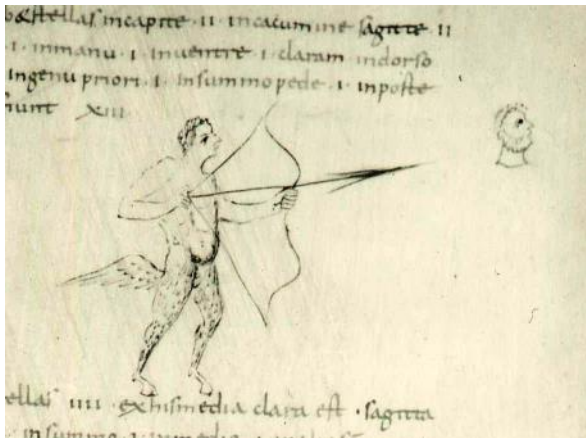 stellas incapite · ii · incacumine sagitte ii
· i · inmanu · i · inventre · i · claram indorso
ingenu priori · i · insummo pede · i · inposte
fiunt xiii
ellas iiii · exhismedia clara est · sagitta
insummo · i · inmedio ·